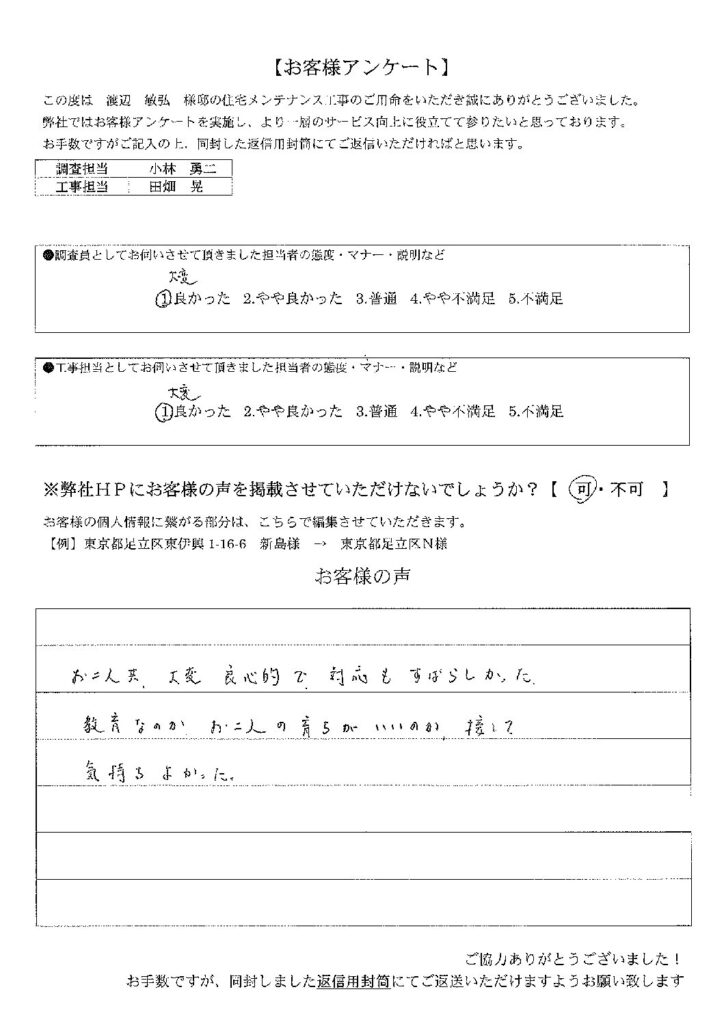 【お客様アンケート】
この度は　渡辺　敏弘　様邸の住宅メンテナンス工事のご用命をいただき誠にありがとうございました。
弊社ではお客様アンケートを実施し、より一層のサービス向上に役立てて参りたいと思っております。
お手数ですがご記入の上、同封した返信用封筒にてご返信いただければと思います。
調査担当　小林　勇二
工事担当　田畑　晃
●調査員としてお伺いさせて頂きました担当者の態度・マナー・説明など
大変
1.良かった　2.やや良かった　3.普通　4.やや不満足　5.不満足
●工事担当としてお伺いさせて頂きました担当者の態度・マナー・説明など
大変
1.良かった　2.やや良かった　3.普通　4.やや不満足　5.不満足
※弊社ＨＰにお客様の声を掲載させていただけないでしょうか？【　可・不可　】
お客様の個人情報に繋がる部分は、こちらで編集させていただきます。
【例】東京都足立区東伊興 1-16-6　新島様　→　東京都足立区Ｎ様
お客様の声
お二人共、大変　良心的で　対応も　すばらしかった。
教育なのか　お二人の育ちが　いいのか、接して
気持ちよかった。
ご協力ありがとうございました！
お手数ですが、同封しました返信用封筒にてご返送いただけますようお願い致します